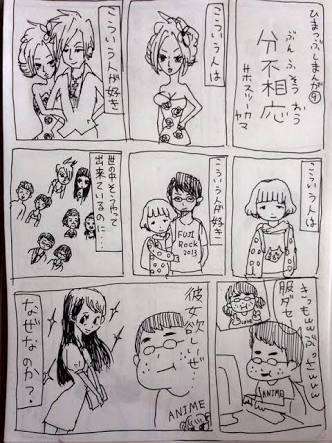 ひまつぶしまんが④
ぶん ふ そう おう
分不相応
こういう人は
こういう人が好き
こういう人は
こういう人が好き
FUJI
Rock
2013
世の中そうやって
出来ているのに…
きっもwwぶっさwww
服ダセ
ANIME
彼女欲しいぜ
ANIME
なぜなのか?